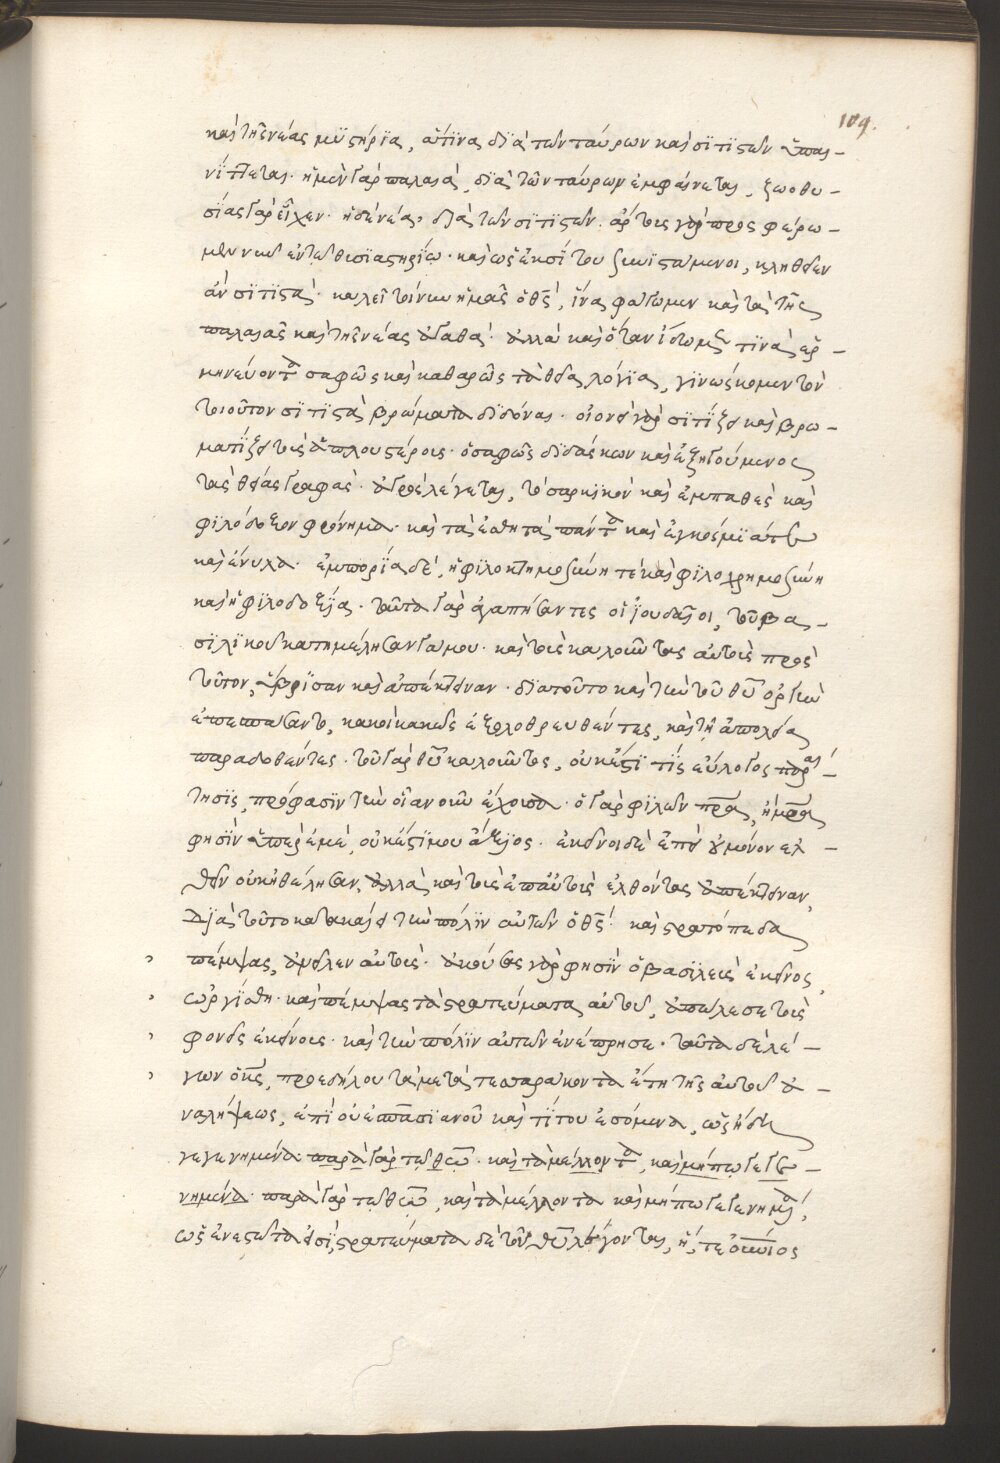 109.
καὶ τῆς νέας μυστήρια, ἅτινα διὰ τῶν ταύρων καὶ σιτιστῶν ὑπαι-
νίττεται. ἡ μὲν γὰρ παλαιὰ, διὰ τῶν ταύρων ἐμφαίνεται, ζωοθυ-
σίας γὰρ εἶχεν. ἡ δὲ νέα, διὰ τῶν σιτιστῶν. ἄρτους γὰρ προσφέρο-
μεν νῦν ἐν τῷ θυσιαστηρίῳ. καὶ ὡς ἐκ σίτου συνιστάμενοι, κληθεῖεν
ἂν σιτιστά. καλεῖ τοίνυν ἡμᾶς ὁ θς, ἵνα φάγωμεν καὶ τὰ τῆς
παλαιᾶς καὶ τῆς νέας ἀγαθά. ἀλλὰ καὶ ὅταν ἴδωμεν τινὰ ἑρ-
μηνεύοντα σαφῶς καὶ καθαρῶς τὰ θεῖα λόγια, γινώσκομεν τὸν
τοιοῦτον σιτιστὰ βρώματα διδόναι. οἱονεὶ γὰρ σιτίζει καὶ βρω-
ματίζει τοὺς ἁπλουστέρους. ὁ σαφῶς διδάσκων καὶ ἐξηγούμενος
τὰς θείας γραφάς. ἀγρὸς λέγεται, τὸ σαρκικὸν καὶ ἐμπαθὲς καὶ
φιλόδοξον φρόνημα. καὶ τὰ αἰσθητὰ πάντα καὶ ἐγκόσμια ταῦτα
καὶ ἔνυλα. ἐμπορία δὲ, ἡ φιλοκτημοσύνη τὲ καὶ φιλοχρημοσύνη
καὶ ἡ φιλοδοξία. ταῦτα γὰρ ἀγαπήσαντες οἱ ἰουδαῖοι, τοῦ βα-
σιλικοῦ κατημέλησαν γάμου. καὶ τοὺς καλοῦντας αὐτοὺς πρὸς
τοῦτον, ὕβρισαν καὶ ἀπέκτειναν. διατοῦτο καὶ τὴν τοῦ θυ ὀργὴν
ἐπεσπάσαντο, κακοὶ κακῶς ἐξολοθρευθέντες, καὶ τῇ ἀπωλείᾳ
παραδοθέντες. τοῦ γὰρ θυ καλοῦντος, οὐκ ἔστι τίς εὔλογος παραί-
τησις, πρόφασιν τὴν οἵαν οὖν ἔχουσα. ὁ γὰρ φιλῶν πρα, ἢ μρα
φησὶν ὑπὲρ ἐμέ, οὐκ ἔστι μου ἄξιος. ἐκεῖνοι δὲ ἐπεὶ οὐ μόνον ἐλ-
θεῖν οὐκ ἠθέλησαν, ἀλλὰ καὶ τοὺς ἐπ' αὐτοὺς ἐλθόντας ἀπέκτειναν,
διὰ τοῦτο κατακαίει τὴν πόλιν αὐτῶν ὁ θς. καὶ στρατόπεδα
πέμψας, ἀνεῖλεν αὐτούς. ἀκούσας γὰρ φησὶν ὁ βασιλεὺς ἐκεῖνος,
ὠργίσθη. καὶ πέμψας τὰ στρατεύματα αὐτοῦ, ἀπώλεσε τοὺς
φονεῖς ἐκείνους. καὶ τὴν πόλιν αὐτῶν ἐνέπρησε. ταῦτα δὲ λέ-
γων ὁ κς, προεδήλου τὰ μετὰ τεσσαράκοντα ἔτη τῆς αὐτοῦ ἀ-
ναλήψεως, ἐπὶ οὐεσπασιανοῦ καὶ τίτου ἐσόμενα, ὡς ἤδη
γεγενημένα παρὰ γὰρ τῷ θεῷ. καὶ τὰ μέλλοντα, καὶ μήπω γεγε-
νημένα. παρὰ γὰρ τῷ θεῷ, καὶ τὰ μέλλοντα καὶ μήπω γεγενημένα,
ὡς ἐνεστῶτα εἰσί, στρατεύματα δὲ τοῦ θυ λέγονται,